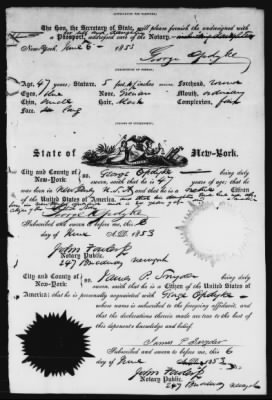 (APPLICATION FOR PASSPORT.)
The Hon. the Secretary of State, will please furnish the undersigned with
a Passport, addressed care of the Notary.
New-York, June 6 - 1853
George Opdyke
(DESCRIPTION OF PERSON.)
Age, 47 years, Stature, 5 feet inches Forehead,
Eyes Nose, Mouth, ordinary
Chin, Hair, Complexion, fair
Face
State of New-York.
City and County of New-York: George Opdyke being duly
sworn, said that he is 47 years of age; that he
was born in New Jersey that he is a Citizen
of the United States of America
George Opdyke
Subscribed and sworn to before me, this 6
day of June A.D. 1853
John Fowler Jr
Notary Public.
247 Broadway New York
City and County of New-York: James P. Snyder being duly
sworn, said that he is a Citizen of the United States of
America; that he is personally acquainted with George Opdyke
whose name is subscribed to the foregoing affidavit, and that
the declarations therein made are true to the best of
this deponent's knowledge and belief.
James P. Snyder
Subscribed and sworn to before me, this 6
day of June 1853
John Fowler Jr
Notary Public.
247 Broadway New York